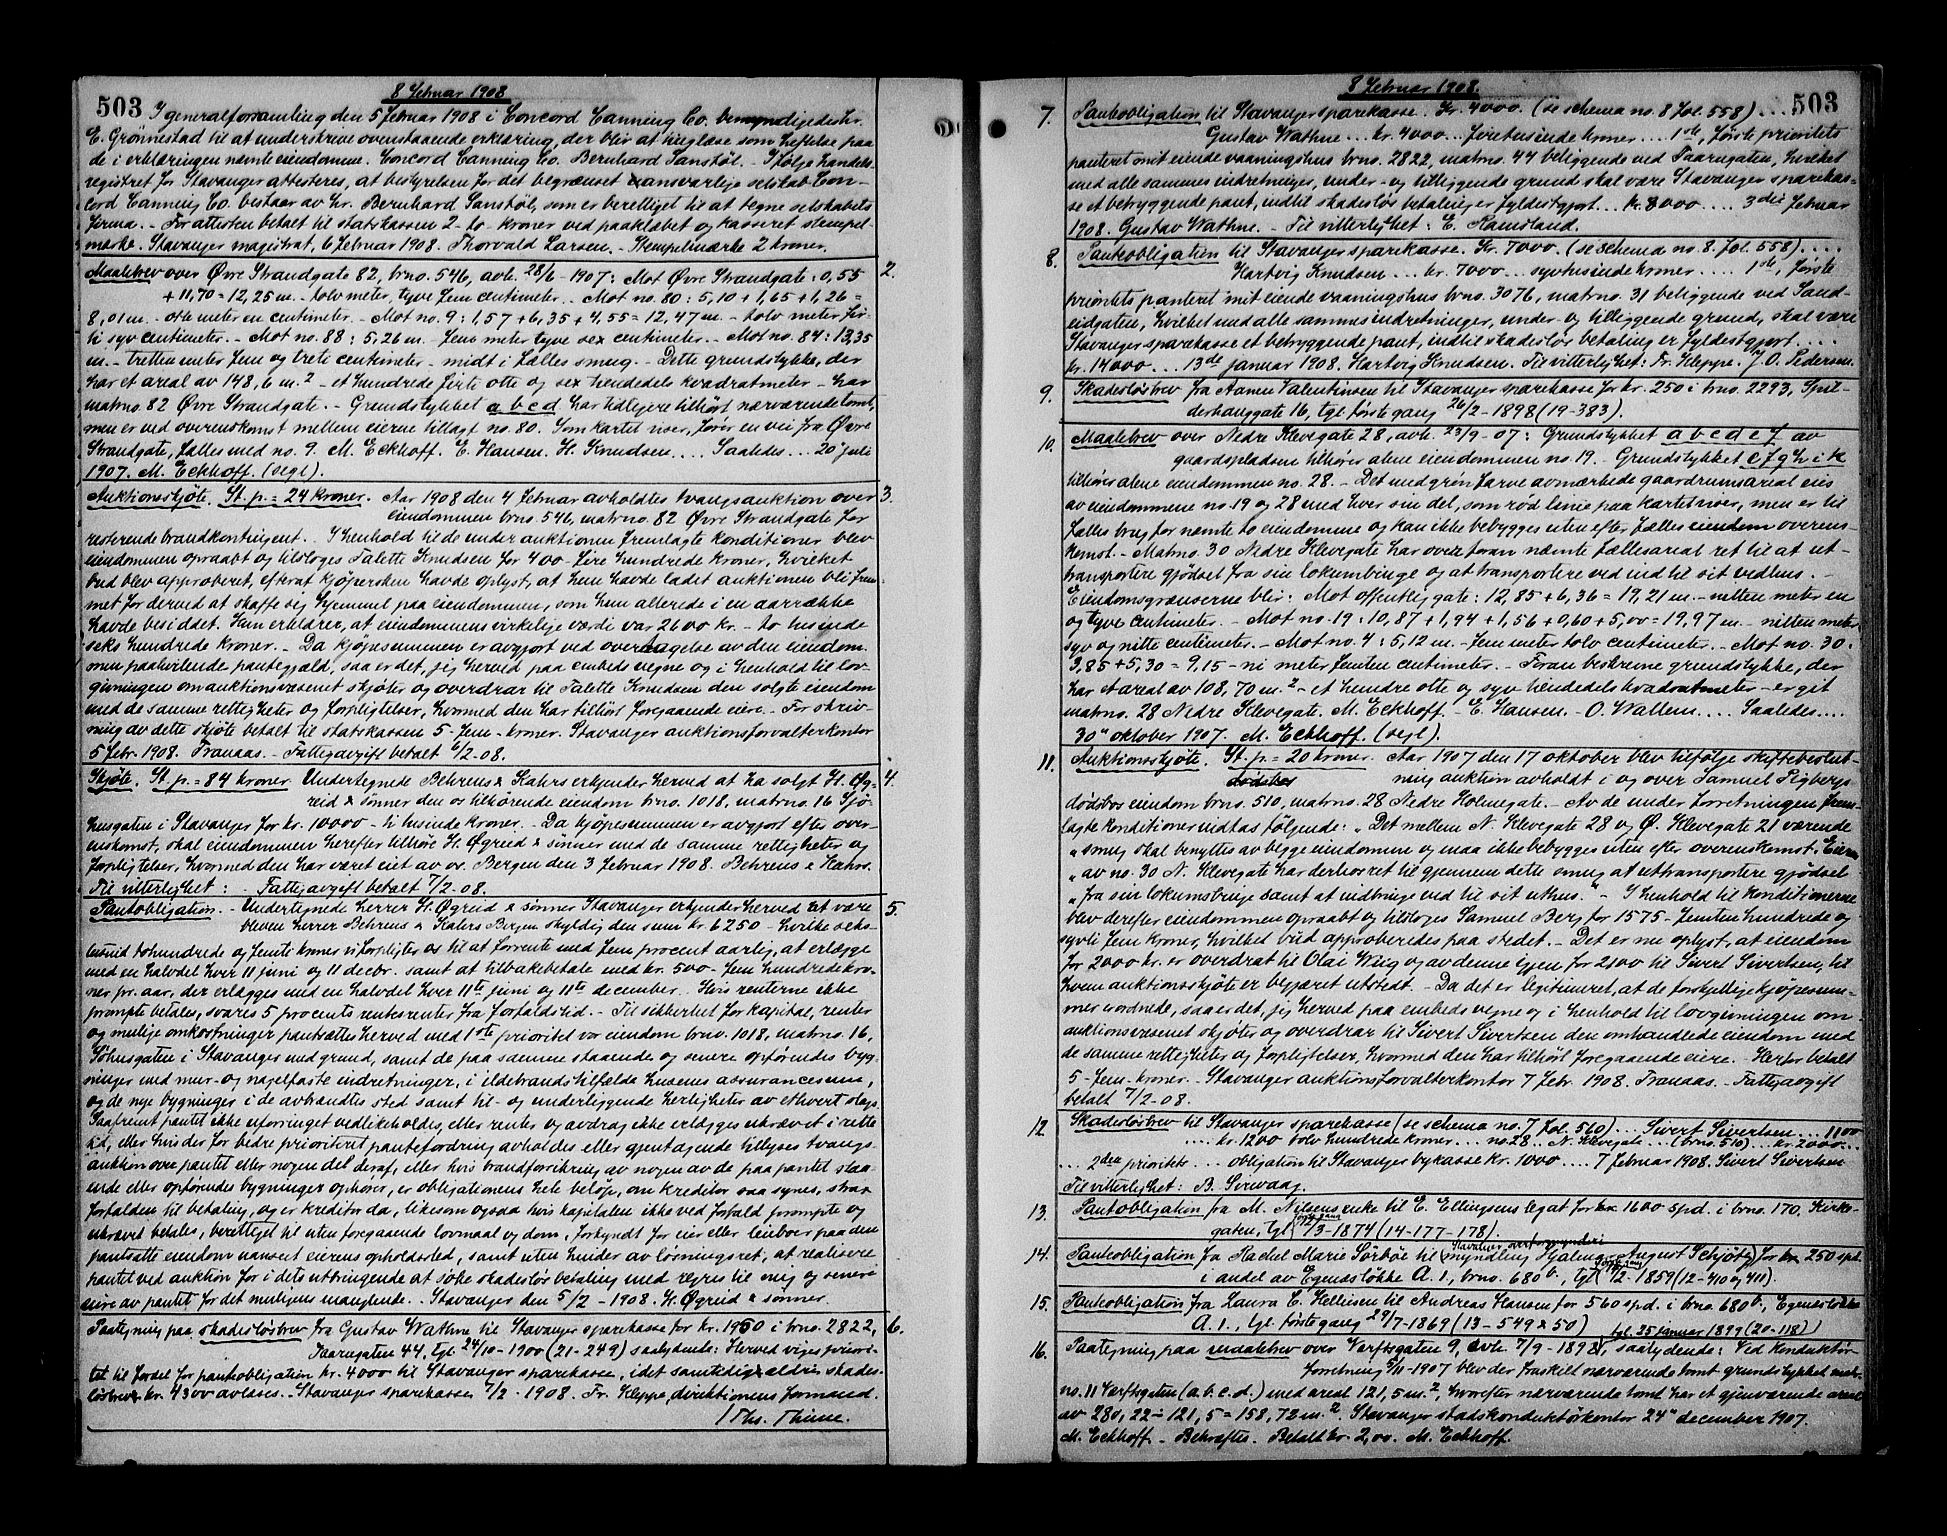 8 Februar 1908
503 I generalforsamling den 5 februar 1908 i Concord Canning Co. bemyndigedes hr.
E. Grönnestad til at underskrive ovenstaaende erklæring, der blir at tinglæse som heftelse paa
de i erklæringen nævnte eiendomme. Concord Canning Co. Bernhard Tanstöl. - Ifölge handels-
registret for Stavanger attesteres, at bestyrelsen for det begrænset ansvarlige selskab Con-
cord Canning Co. bestaar av hr. Bernhard Tanstöl, som er berettiget til at tegne selskabets
firma. - For attesten betalt til statskassen 2 - to - kroner ved paaklæbet og kasseret stempel-
merke. Stavanger magistrat, 6 februar 1908. Thorvald Larsen. - Stempelmærke 2 kroner.
Maalebrev over Øvre Strandgate 82, brno. 546, avh. 28/6 - 1907: Mot Øvre Strandgate: 0,55 2.
+ 11,70 = 12,25 m. - tolv meter, tyve fem centimeter. - Mot no. 80: 5,10 + 1,65 + 1,26 =
8,01 m. - otte meter en centimeter. - Mot no. 9: 1,57 + 6,35 + 4,55 = 12,47 m. - tolv meter för-
ti syv centimeter. - Mot no. 88: 5,26 m. fem meter tyve sex centimeter. - Mot no. 84: 13,35
m. - tretten meter fem og trete centimeter - midt i fælles smug. - Dette grundstykke, der
har et areal av 148,6 m.² - et hundrede firte otte og sex tiendedels kvadratmeter - har
matrno. 82 Øvre Strandgate. - Grundstykket a b c d har tidligere tilhört nærværende tomt,
men er ved overenskomst mellem eierne tillagt no. 80. Som kartet viser, förer en vei fra Øvre
Strandgate, fælles med no. 9. M. Eckhoff. E. Hansen. H. Knudsen.... Saaledes... 20 juli
1907. M. Eckhoff. (segl).
Auktionsskjöte. St. p. = 24 kroner. Aar 1908 den 4 februar avholdtes tvangsauktion over 3.
eiendommen brno. 546, matrno. 82 Øvre Strandgate for
resterende brandkontingent. I henhold til de under auktionen fremlagte konditioner blev
eiendommen opraabt og tilsloges Talette Knudsen for 400 - fire hundrede kroner, hvilket
bud blev approberet, efterat kjöpersken havde oplyst, at hun havde ladet auktionen bli frem-
met for derved at skaffe sig hjemmel paa eiendommen, som hun allerede i en aarrække
havde besiddet. Hun erklærer, at eiendommens virkelige værdi var 2600 kr. - to tusinde
seks hundrede kroner. - Da kjöpesummen er avgjort ved overtagelse av den eiendom-
men paahvilende pantegjæld, saa er det, jeg herved paa embeds vegne og i henhold til lov-
givningen om auktionsvæsenet skjöter og overdrar til Talette Knudsen den solgte eiendom
med de samme rettigheter og forpligtelser, hvormed den har tilhört foregaaende eiere. - For skriv-
ning av dette skjöte betalt til statskassen 5 - fem - kroner. Stavanger auktionsforvalterkontor
5 febr. 1908. Tranaas. - Fattigavgift betalt 6/2 - 08.
Skjöte. St. p. = 84 kroner. Undertegnede Behrens & Kahrs erkjender herved at ha solgt H. Øg- 4.
reid & sönner den os tilhörende eiendom brno. 1018, matrno. 16 Sjö-
husgaten i Stavanger for kr. 10000 - ti tusinde kroner. - Da kjöpesummen er avgjort efter over-
enskomst, skal eiendommen herefter tilhöre H. Øgreid & sönner med de samme rettigheter og
forpligtelser, hvormed den har været eiet av os. Bergen den 3 februar 1908. Behrens & Kahrs.
Til vitterlighet: - Fattigavgift betalt 7/2 - 08.
Pantobligation. - Undertegnede herrer H. Øgreid & sönner Stavanger erkjender herved at være 5.
bleven herrer Behrens & Kahrs Bergen skyldig den sum kr. 6250 - hvilke seks-
tusind tohundrede og femti kroner vi forpligter os til at forrente med fem procent aarlig, at erlægge
med en halvdel hver 11 juni og 11 decbr. samt at tilbakebetale med kr. 500 - fem hundrede kro-
ner pr. aar, der erlægges med en halvdel hver 11te juni og 11te december. Hvis renterne ikke
prompte betales, svares 5 procents rentesrenter fra forfaldstid. - Til sikkerhet for kapital, renter
og mulige omkostninger pantsættes herved med 1ste prioritet vor eiendom brno. 1018, matrno. 16,
Söhusgaten i Stavanger med grund, samt de paa samme staaende og senere opförendes byg-
ninger med mur- og nagelfaste indretninger, i ildebrandstilfælde husenes assurancesum,
og de nye bygninger i de avbrændtes sted samt til- og underliggende herligheter av ethvert slags.
Saafremt pantet ikke uforringet vedlikeholdes, eller renter og avdrag ikke erlægges ukrævet i rette
tid, eller hvis der for bedre prioriteret pantefordring avholdes eller gjentagende tillyses tvangs-
auktion over pantet eller nogen del deraf, eller hvis brandforsikring av nogen av de paa pantet staa-
ende eller opförendes bygninger ophörer, er obligationens hele belöp, om kreditor saa synes, strax
forfalden til betaling, og er kreditor da, likesom ogsaa hvis kapitalen ikke ved forfald prompte og
ukrævet betales, berettiget til uten foregaaende lovmaal og dom, forkyndt for eier eller leieboer paa den
pantsatte eiendom uanset eierens opholdssted, samt uten hinder av lösningsret, at realisere
pantet ved auktion for i dets utbringende at söke skadeslös betaling med regres til mig og senere
eiere av pantet for det muligens manglende. Stavanger den 5/2 - 1908. H. Øgreid & sönner.
Paategning paa skadeslösbrev fra Gustav Wathne til Stavanger sparekasse for kr. 1950 i brno. 2822, 6.
Taarngaten 44, tgl. 24/10 - 1900 (21 - 249) saalydende: Herved viges priori-
tet til fordel for pantobligation kr. 4000 til Stavanger sparekasse, idet samtidig ældre skades-
lösbrev kr. 4300 avlæses. - Stavanger sparekasse 7/2 - 1908. Fr. Kleppe, direktionens formand.
/ Ths. Thime.
8 Februar 1908. 503
7. Pantobligation til Stavanger sparekasse. Kr. 4000. (se schema no. 8 fol. 558)...
Gustav Wathne... kr. 4000... firetusinde kroner... 1ste, förste prioritets
panteret i mit eiende vaaningshus brno. 2822, matrno. 44 beliggende ved Taarngaten, hvilket
med alle sammes indretninger, under- og tilliggende grund skal være Stavanger sparekas-
se et betryggende pant, indtil skadeslös betaling er fyldestgjort... kr. 8000.... 3die februar
1908. Gustav Wathne. - Til vitterlighet: E. Ramsland.
8. Pantobligation til Stavanger sparekasse. Kr. 7000. (se schema no. 8. fol. 558)....
Hartvig Knudsen... kr. 7000... syvtusinde kroner.... 1ste, förste
prioritets panteret i mit eiende vaaningshus brno. 3076, matrno. 31 beliggende ved Sand-
eidgaten, hvilket med alle sammes indretninger, under- og tilliggende grund, skal være
Stavanger sparekasse et betryggende pant, indtil skadeslös betaling er fyldestgjort....
kr. 14000... 13de januar 1908. Hartvig Knudsen. Til vitterlighet: Fr. Kleppe. J. O. Pedersen.
9. Skadeslösbrev fra Aanen Valentinsen til Stavanger sparekasse for kr. 250 i brno. 2293, Spil-
derhauggate 16, tgl. förste gang 26/2 - 1898 (19 - 383).
10. Maalebrev over Nedre Klevegate 28, avh. 23/9 - 07: Grundstykket a b c d e f av
gaardspladsen tilhörer alene eiendommen no. 19. - Grundstykket e f g h i k
tilhörer alene eiendommen no. 28. - Det med grön farve avmærkede gaardsrumsareal eies
av eiendommene no 19 og 28 med hver sin del, som röd linie paa kartet viser, men er til
fælles brug for nævnte to eiendomme og kan ikke bebygges uten efter fælles eiendom overens-
komst. - Matrno. 30 Nedre Klevegate har over foran nævnte fællesareal ret til at ut-
transportere gjödsel fra sin lokumbinge og at transportere ved ind til sit vedhus. -
Eiendomsgrænserne blir: Mot offentlig gate: 12,85 + 6,36 = 19,21 m. - nitten meter en
og tyve centimeter. - Mot no. 19: 10,87 + 1,94 + 1,56 + 0,60 + 5,00 = 19,97 m - nitten meter
syv og nitte centimeter. - Mot no. 4: 5,12 m. - fem meter tolv centimeter. - Mot no. 30:
3,85 + 5,30 = 9,15 - ni meter femten centimeter. - Foran beskrevne grundstykke, der
har et areal av 108,70 m.² - et hundre otte og syv tiendedels kvadratmeter - er git
matrno. 28 Nedre Klevegate. M. Eckhoff. - E. Hansen. - O. Wallem.... Saaledes....
30" oktober 1907. M. Eckhoff. (segl).
11. Auktionsskjöte. St. p. = 20 kroner. Aar 1907 den 17 oktober blev tilfölge skiftebeslut-
dödsbos ning auktion avholdt i og over Samuel Sigbergs
dödsbos eiendom brno. 510, matrno. 28 Nedre Holmegate. - Av de under forretningen frem-
lagte konditioner indtas fölgende: „Det mellem N. Klevegate 28 og Ø. Klevegate 21 værende
„smug skal benyttes av begge eiendomme og maa ikke bebygges uten efter overenskomst. Eieren
„av no. 30 N. Klevegate har derhos ret til gjennem dette smug at uttransportere gjödsel
„fra sin lokumsbinge samt at indbringe ved til sit uthus." - I henhold til konditionerne
blev derefter eiendommen opraabt og tilsloges Samuel Berg for 1575 - femten hundrede og
sytti fem kroner, hvilket bud approberedes paa stedet. - Det er nu oplyst, at eiendom
for 2000 kr. er overdrat til Olai Wiig og av denne igjen for 2100 til Sivert Sivertsen, til
hvem auktionsskjöte er begjæret utstedt. - Da det er legitimeret, at de forskjellige kjöpesum-
mer er ordnede, saa er det, jeg herved paa embeds vegne og i henhold til lovgivningen om
auktionsvæsenet skjöter og overdrar til Sivert Sivertsen den omhandlede eiendom med
de samme rettigheter og forpligtelser, hvormed den har tilhört foregaaende eiere. - Herfor betalt
5 - fem - kroner. - Stavanger auktionsforvalterkontor 7 febr. 1908. Tranaas. - Fattigavgift
betalt 7/2 - 08.
12. Skadeslösbrev til Stavanger sparekasse (se schema no. 7 fol. 560)... Sivert Sivertsen... 1100
.... kr. 1200 tolv hundrede kroner... no. 28. N. Klevegate... (brno. 510)... kr. 2000...
... 2den prioritets... obligation til Stavanger bykasse kr. 1000.... 7 februar 1908. Sivert Sivertsen
Til vitterlighet: B. Sirevaag.
13. Pantobligation fra M. Nilsens enke til E. Ellingsens legat for kr. 1600 spd. i brno. 170. Kirke-
gaten, tgl. förste gang /3 - 1874 (14 - 177 - 178).
14. Pantobligation fra Rachel Marie Sörböe til Stavanger overformynderi (myndling Hjalmar August Schjötz) for kr. 250 spd.
i andel av Egenæslökke A. 1, brno. 680 b., tgl. förste gang /2 - 1859 (12 - 410 og 411).
15. Pantobligation fra Laura C. Kellisen til Andreas Hansen for 560 spd. i brno. 680 b., Egenæslökke
A. 1., tgl. förste gang 29/7 - 1869 (13 - 549 & 50)
16. Paategning paa maalebrev over Verftsgaten 9, avh. 7/9 - 1898, tgl. 25 januar 1899 (20 - 118) saalydende: Ved konduktör-
forretning /11 - 1907 blev der fraskilt nærværende tomt grundstykket matr.
no. 11 Værftsgaten (a. b. c. d.) med areal 121,5 m.², hvorefter nærværende tomt har et gjenværende areal
av 280,22 ÷ 121,5 = 158,72 m.². Stavanger stadskonduktörkontor 24" december 1907.
M. Eckhoff. - Bekræftes. Betalt kr. 2,00. M. Eckhoff.